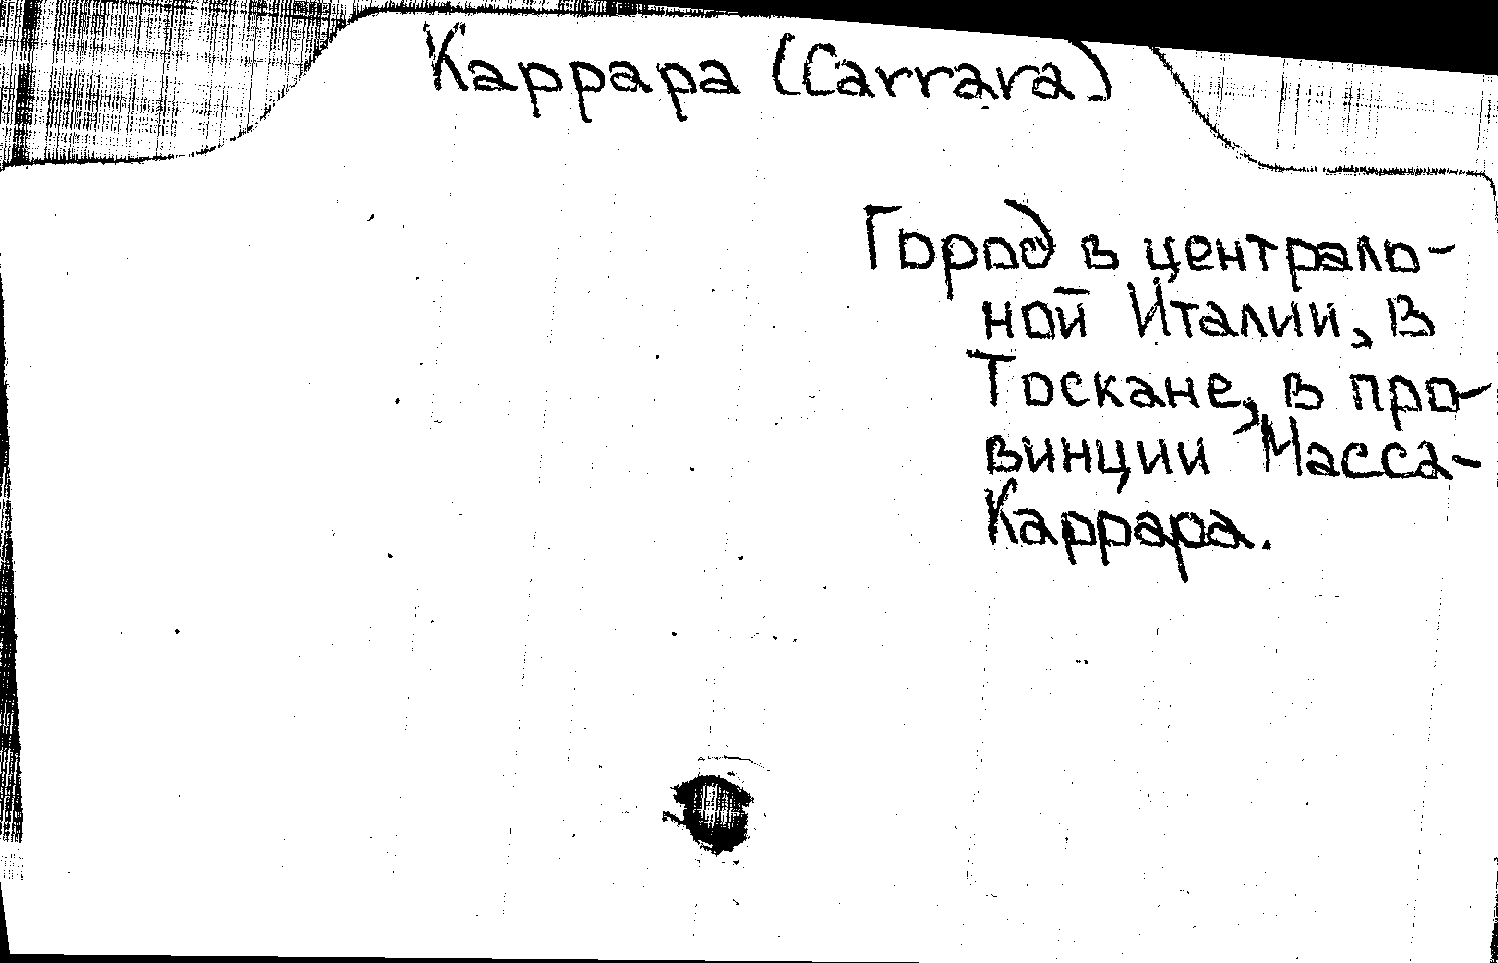 Каррара (Carrara)
Город в централь-
ной Италии, в
Тоскане, в про-
винции Масса-
Каррара.